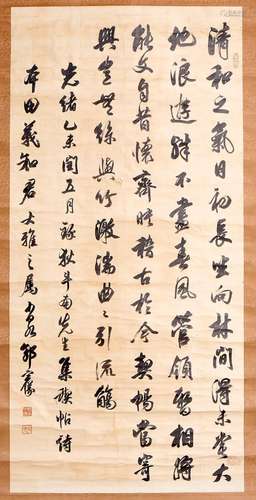 清和之氣日初長坐向林間得未嘗大
地浪遊殊不盡春風管領暫相將
能文自昔懷齊稽古於今契暢當寄
興豈無絲與竹激湍曲曲引流觴
光緒乙未閏五月錄狄斗南先生集禊帖詩
本田義知君大雅之屬 郭